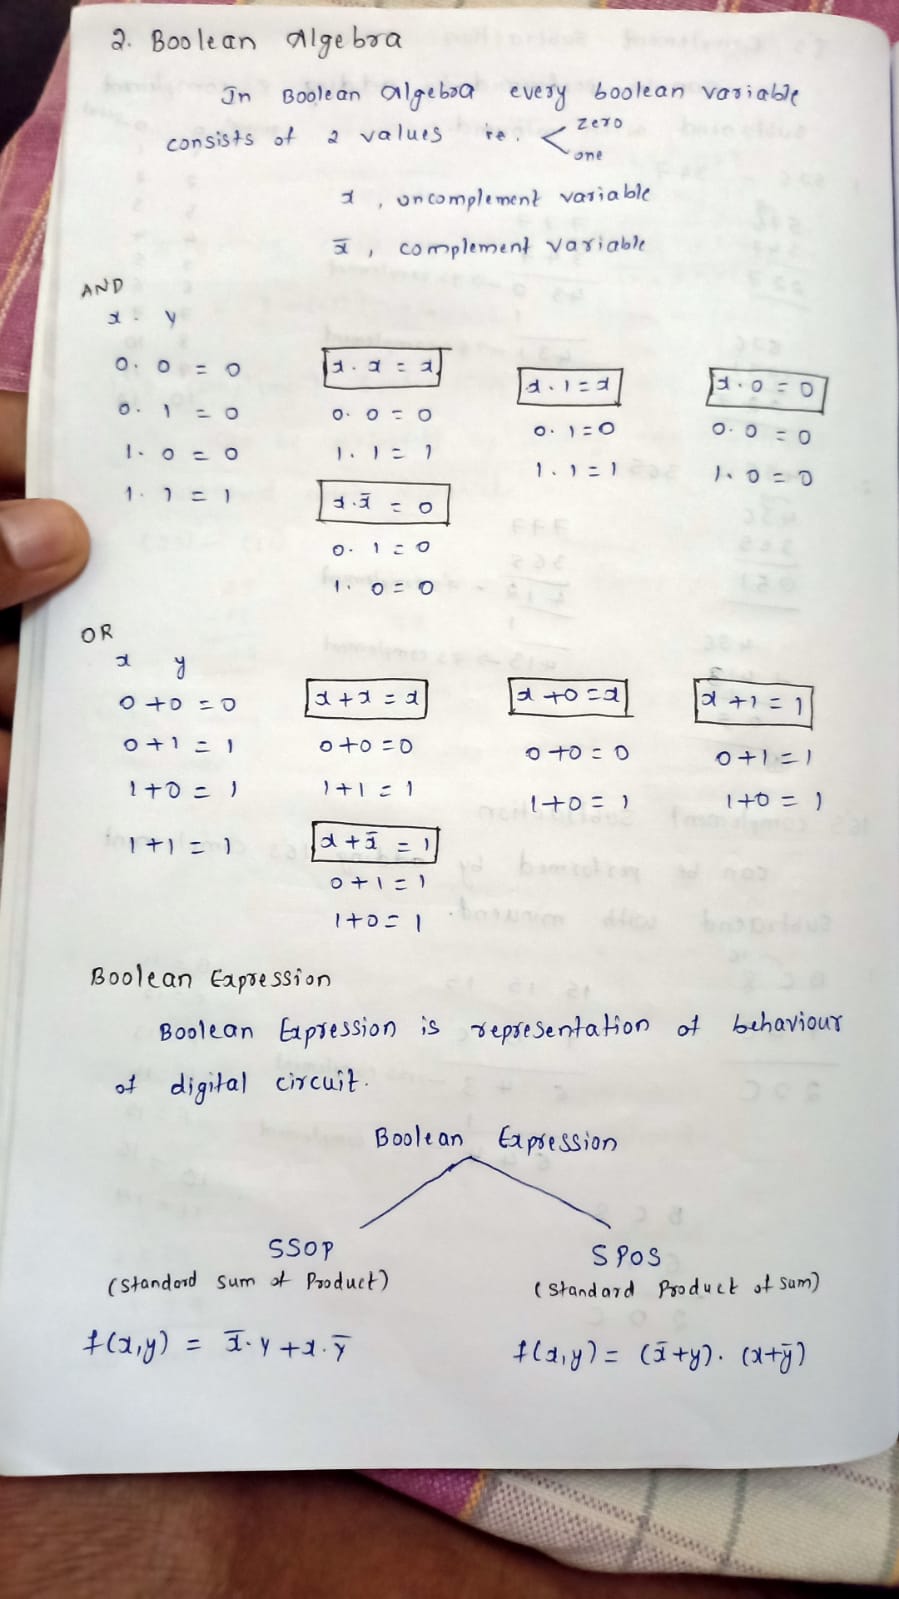 2. Boolean Algebra
In Boolean algebra every boolean variable
consists of 2 values ie. < zero
one
x , uncomplement variable
x̄ , complement variable
AND
x . y
0. 0 = 0
0. 1 = 0
1. 0 = 0
1. 1 = 1
x . x = x
0. 0 = 0
1. 1 = 1
x.x̄ = 0
0. 1 = 0
1. 0 = 0
x . 1 = x
0. 1 = 0
1. 1 = 1
x . 0 = 0
0. 0 = 0
1. 0 = 0
OR
x y
0 + 0 = 0
0 + 1 = 1
1 + 0 = 1
1 + 1 = 1
x + x = x
0 + 0 = 0
1 + 1 = 1
x + x̄ = 1
0 + 1 = 1
1 + 0 = 1
x + 0 = x
0 + 0 = 0
1 + 0 = 1
x + 1 = 1
0 + 1 = 1
1 + 0 = 1
Boolean Expression
Boolean Expression is representation of behaviour
of digital circuit.
Boolean Expression
SSOP
(Standard Sum of Product)
f(x,y) = x̄. y + x. ȳ
SPOS
(Standard Product of Sum)
f(x,y) = (x̄+y). (x+ȳ)